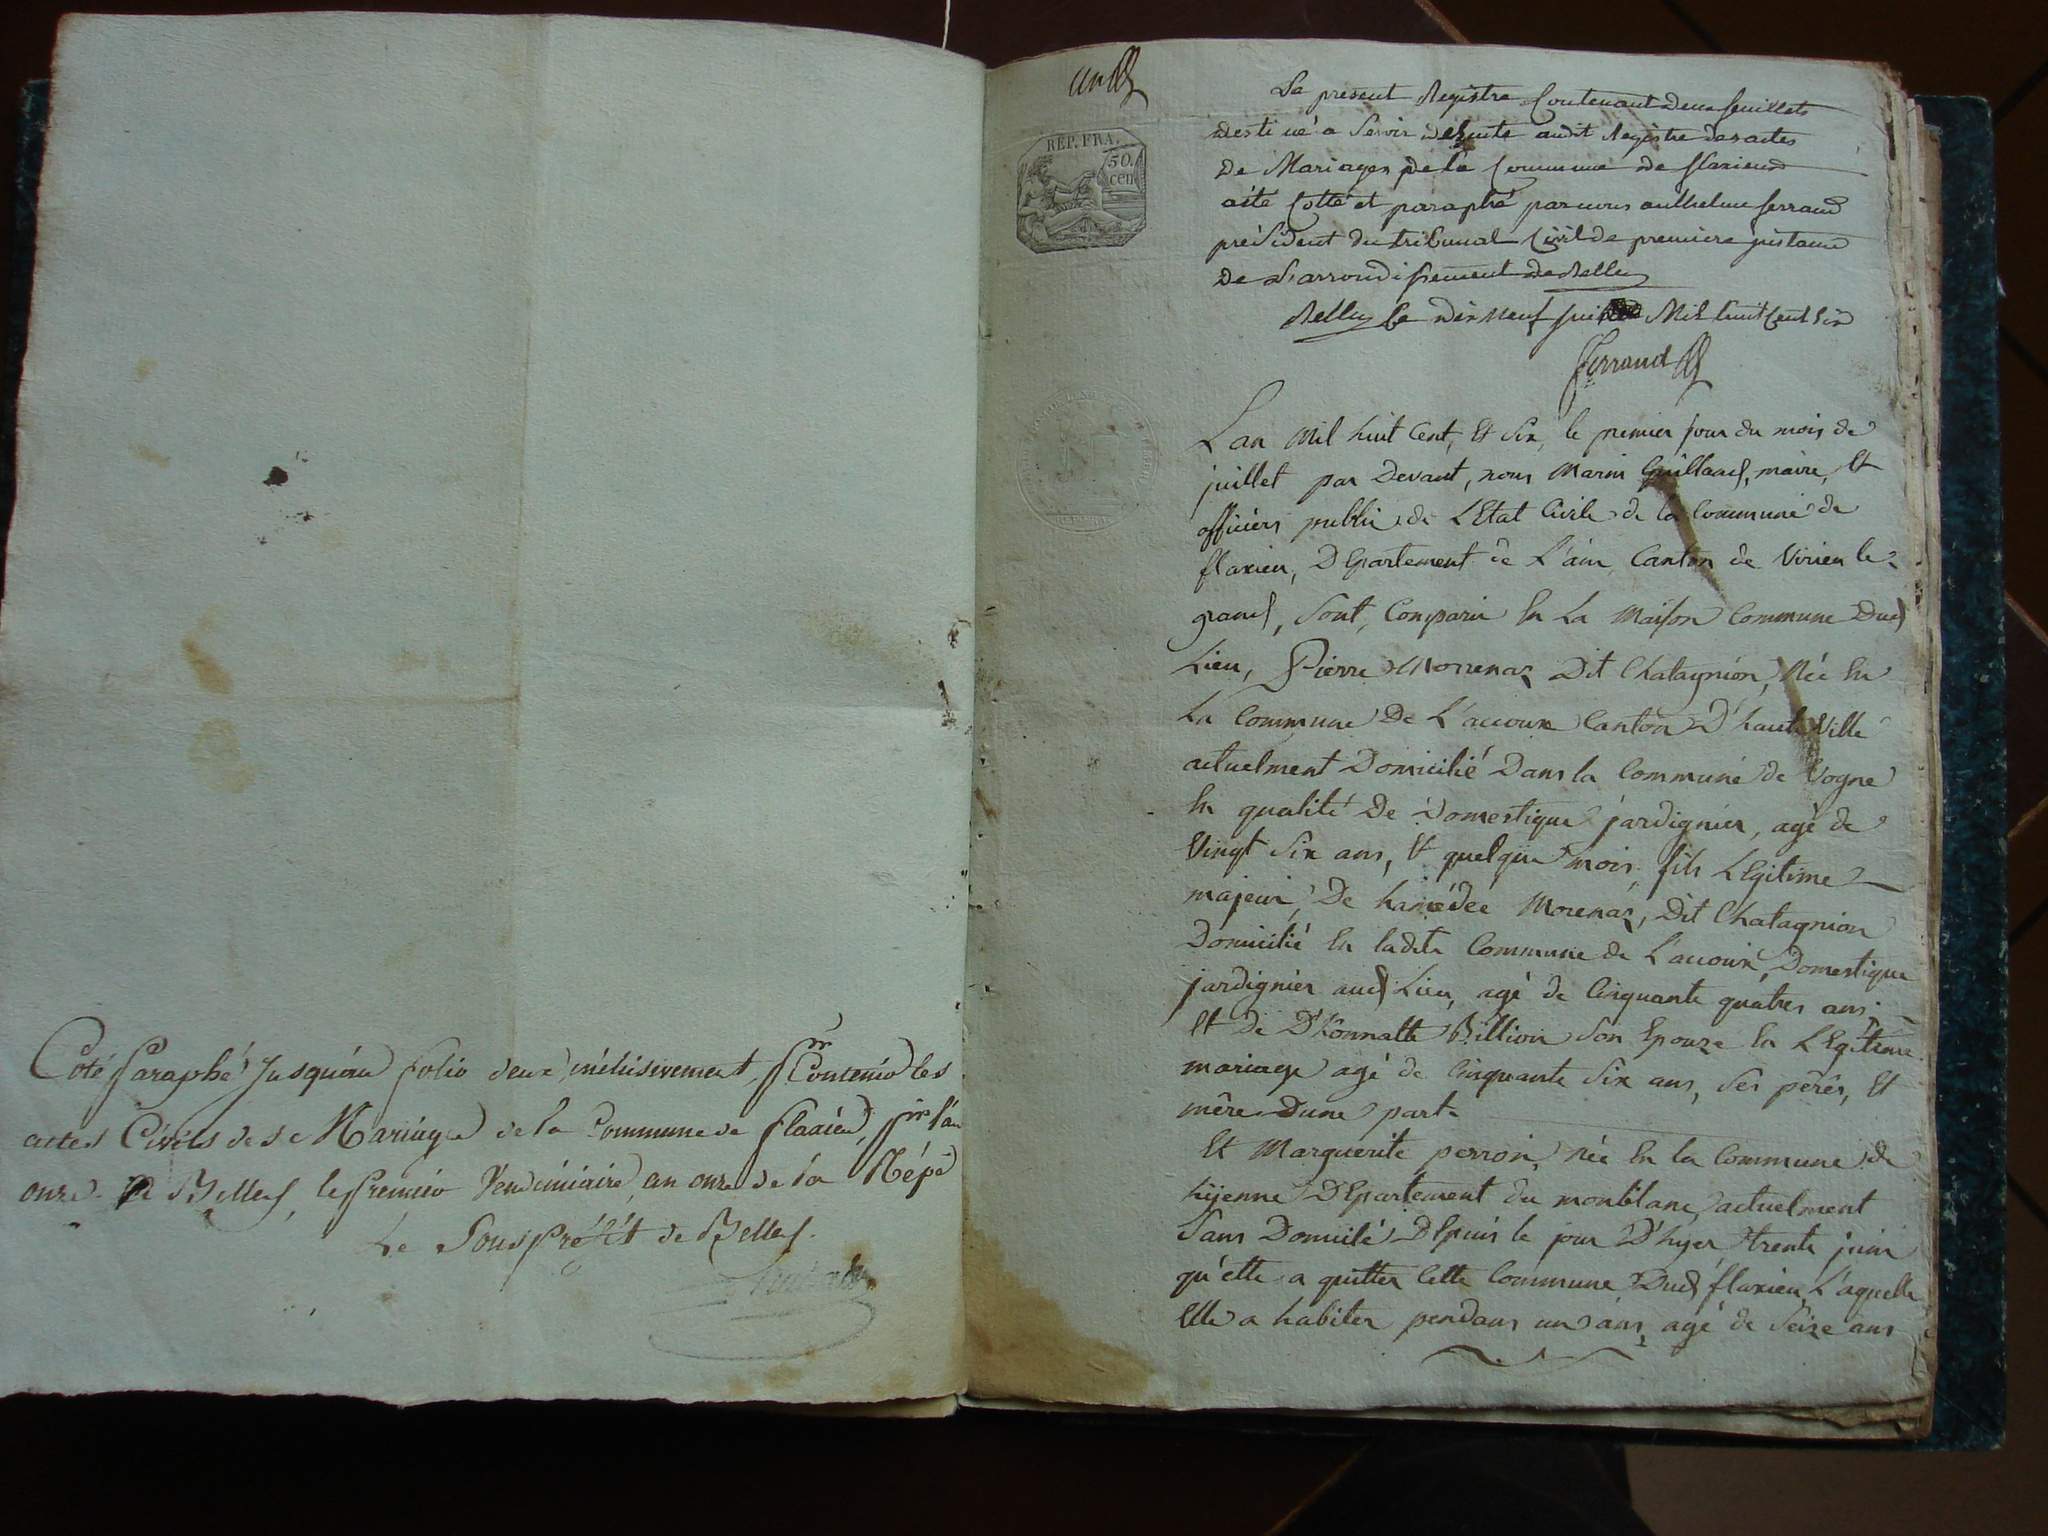 Coté Paraphé Jusqu'au folio deux inclusivement, pr Contenir les
actes Civils des Mariage de la Commune de flaxieu, pr l'an
onze. à Belley, le Premier Vendemiaire, an onze de la Rép.
Le Sous Préfet de Belley.
un
REP. FRA.
50.
cen
Le présent Registre Contenant deux feuillets
destiné a Servir de suite audit Registre des actes
de Mariages de la Commune de flaxieux
a été Cotté et paraphé par nous anthelme ferrand
président du tribunal Civil de première instance
de L'arrondissement de Belley
Belley le dix neuf juin Mil huit Cent Six
Ferrand
L'an mil huit Cent, Et Six, le premier jour du mois de
juillet par Devant, nous Marin Guilland, maire, Et
officiers public de L'Etat Civile de la Commune de
flaxieu, Département de L'ain Canton de Virieu le
grand, Sont, Comparu En La Maison Commune Dud
Lieu, Pierre Morrenaz Dit Chatagnion, Née En
La Commune De L'accoux Canton D'haute Ville
actuelment Domicilié Dans la Commune de Vogne
En qualité De Domestique jardignier, agé de
Vingt Six ans, Et quelque mois, fils LEgitime
majeur, De hamédée Morenaz, Dit Chatagnion
Domicilié En ladite Commune de L'accoux, Domestique
jardignier aud Lieu, agé de Cinquante quatres ans,
Et de D'honnatte Billion Son Epouze En LEgitime
mariage agé de Cinquante Six ans, Ses pêrês, Et
mêre Dune part.
Et Marguerite perron, Née En la Commune de
hyenne DEpartement du monblanc, actuelment
Sans Domicile DEpuis le jour D'hyer trente juin
qu'elle a quitter Cette Commune Dud flaxieu L'aquelle
Elle a habiter pendans un ans, agé de Seize ans